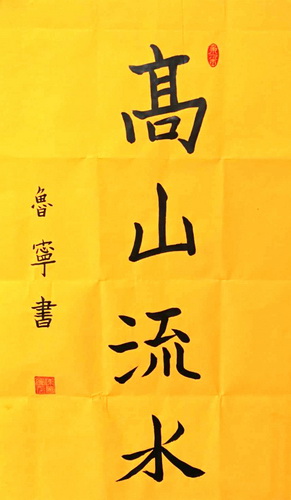 髙山流水
魯寧書